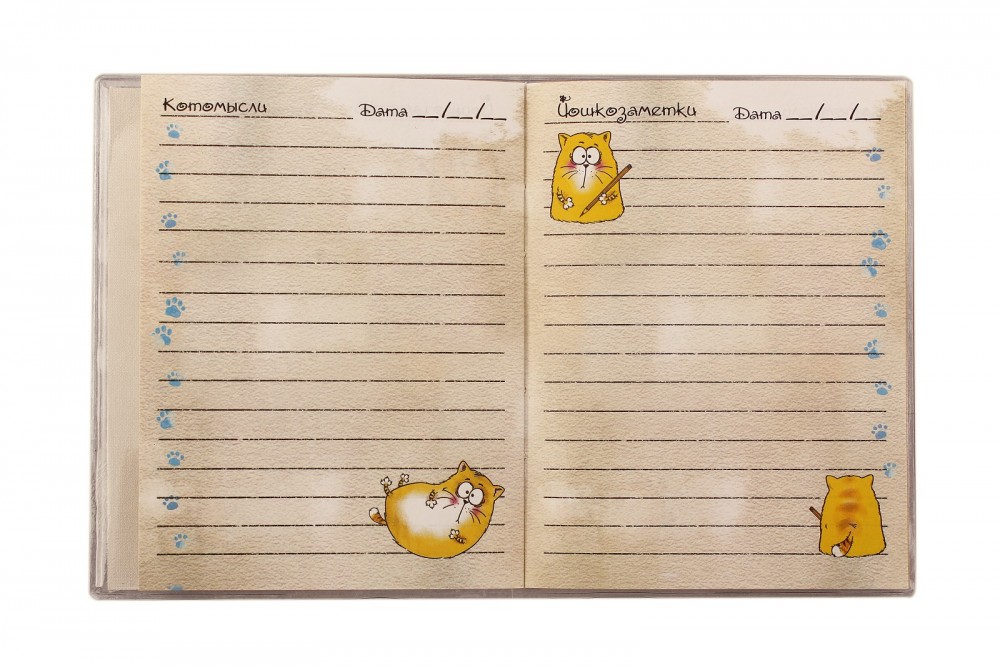 Котомысли
Дата __/__/__
Йошкозаметки
Дата __/__/__